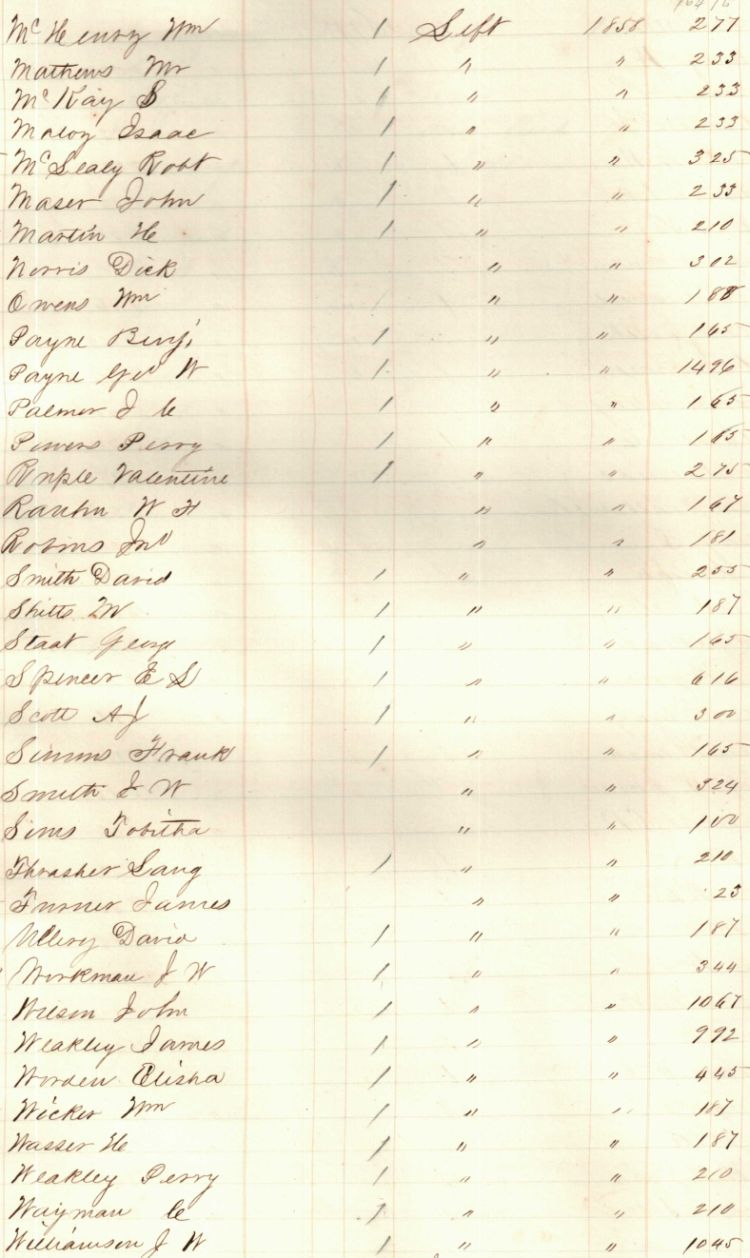 McHenry Wm 1 Sept 1858 277
Mathews Mr 1 " " 233
McKay S 1 " " 233
Maloy Isaac 1 " " 233
McSealy Robt 1 " " 325
Maser John 1 " " 233
Martin He 1 " " 210
Norris Dick " " 302
Owens Wm " " 188
Payne Benj. 1 " " 165
Payne Geo W 1 " " 1496
Palmer J C 1 " " 165
Powers Perry 1 " " 165
Ruple Valentine 1 " " 275
Rankin W H " " 167
Robins Jno " " 181
Smith David 1 " " 255
Shitts W 1 " " 187
Staat George 1 " " 165
Spencer E S 1 " " 616
Scott A J 1 " " 300
Simms Frank 1 " " 165
Smith J W " " 324
Sims Tobitha " " 100
Thrasher Sang 1 " " 210
Turner James " " 23
Ullery David 1 " " 187
Workman J W 1 " " 344
Wilson John 1 " " 1067
Weakley James 1 " " 992
Worden Elisha 1 " " 445
Wicker Wm 1 " " 187
Wasser He 1 " " 187
Weakley Perry 1 " " 210
Wayman C 1 " " 210
Williamson J W 1 " " 1045